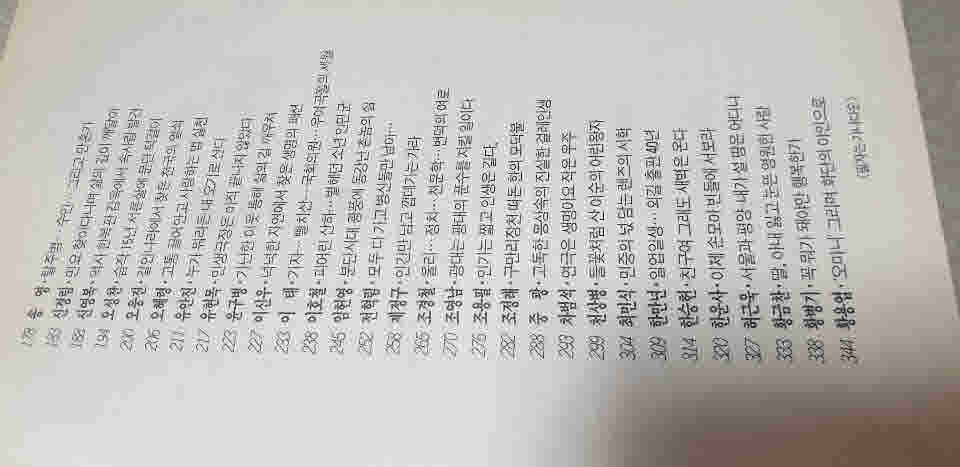 178 송 영·탈주범… 수인… 그리고 만춘기
183 신경림·민요 찾아다니며 삶의 깊이 깨달아
188 신영복·역사 한복판 감옥에서 속사람 발견
194 오성찬·습작 15년 서른살에 문단 턱걸이
200 오웅진·걸인나라에서 찾은 천국의 열쇠
206 오혜령·고통 끌어안고 사랑하는 법 실천
211 유안진·누가 뭐라든 내 오기로 산다
217 유현목·인생극장은 아직 끝나지 않았다
223 윤구병·가난한 이웃 통해 삶의 길 깨우쳐
227 이신우·넉넉한 자연에서 찾은 생명의 패션
233 이 태·기자… 빨치산… 국회의원… 우여곡절의 세월
238 이호철·피어린 산하… 별 헤던 소년 인민군
245 임헌영·분단시대 광풍에 동강난 촌놈의 삶
252 전혁림·모두 다 가고 병신들만 남아…
258 제정구·인간만 남고 껍데기는 가라
265 조정철·물리… 정치… 천문학… 변덕의 여로
270 조영남·광대는 광대의 분수를 지킬 일이다
276 조용필·인기는 짧고 인생은 길다
282 조정래·구만리장천 떠도는 한의 모닥불
288 중 광·고독한 몽상속의 진실한 걸레인생
293 차범석·연극은 생명이요 작은 우주
299 천상병·들꽃처럼 산 이순의 어린왕자
304 최민식·민중의 넋 담는 렌즈의 시학
309 한만년·일업일생… 외길 출판 40년
314 한승헌·친구여 그래도 새벽은 온다
320 한운사·이제 손모아 빈들에 서보라
327 하근욱·서울과 평양 내가 설 땅은 어디냐
333 황금찬·딸, 아내 잃고 눈뜬 영원한 사랑
338 황병기·꼭 뭐가 돼야만 행복한가
344 황용엽·오마니 그리며 화단의 이인으로
(필자는 가나다순)